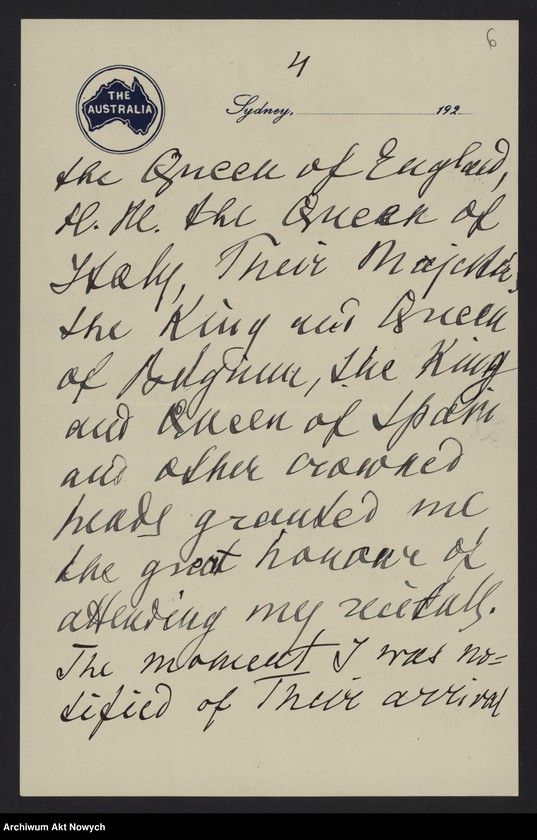 6
4
THE
AUSTRALIA
Sydney, 192
the Queen of England,
H. M. the Queen of
Italy, Their Majesties
the King and Queen
of Belgium, the King
and Queen of Spain
and other crowned
heads granted me
the great honour of
attending my recitals.
The moment I was no=
tified of Their arrival
Archiwum Akt Nowych